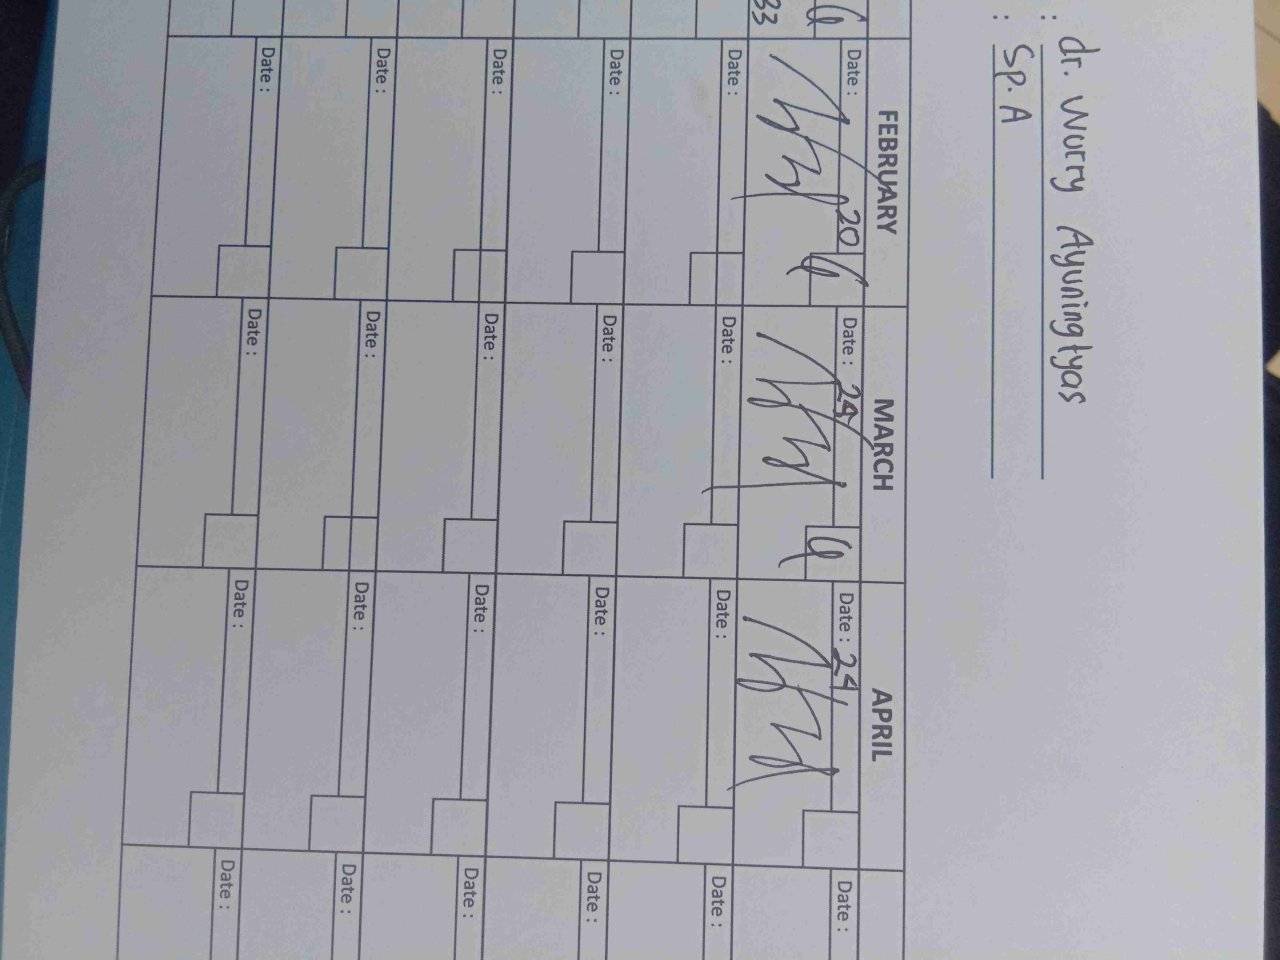 : dr. Wurry Ayuningtyas
: Sp. A
FEBRUARY MARCH APRIL
Date : 20 Date : 24 Date : 24 Date :
33
Date : Date : Date : Date :
Date : Date : Date : Date :
Date : Date : Date : Date :
Date : Date : Date : Date :
Date : Date : Date : Date :